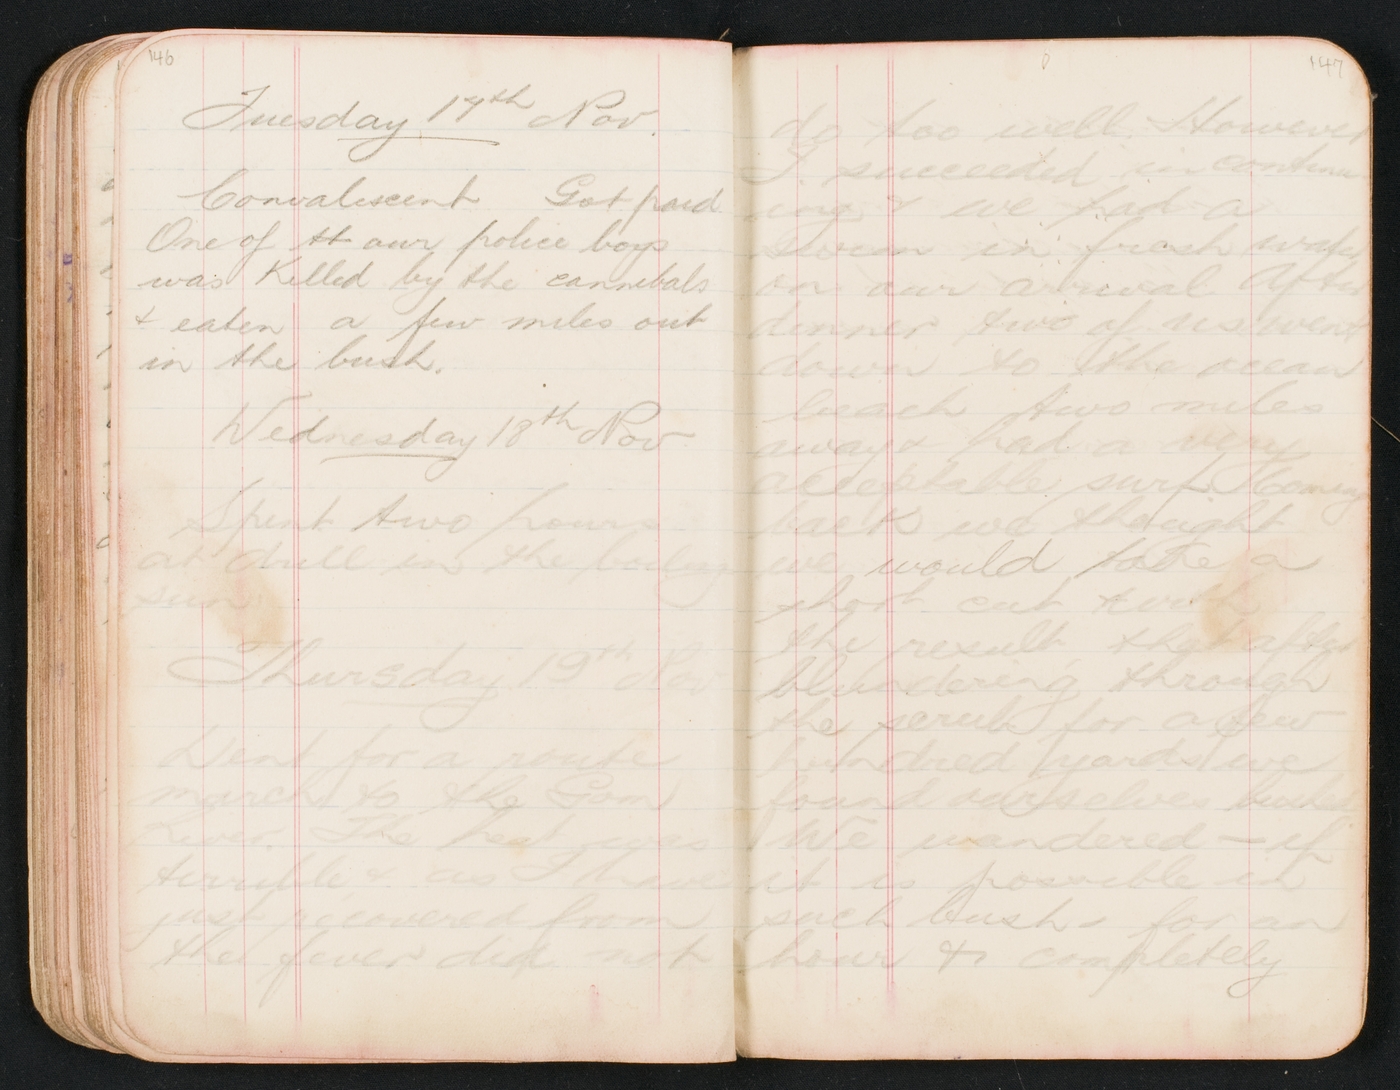 146
Tuesday 17th Nov.
Convalescent Got paid
One of our police boys
was killed by the cannibals
& eaten a few miles out
in the bush.
Wednesday 18th Nov
Spent two hours
at drill in the boiling
sun
Thursday 19th Nov
Went for a route
march to the
River. The heat was
terrible & as I have
just recovered from
the fever did not
147
do too well. However
I succeeded in continu
ing & we had a
swim in fresh water
on our arrival After
dinner two of us went
down to the ocean
beach two miles
away & had a very
acceptable surf. Coming
back we thought
we would take a
short cut with
the result that after
blundering through
the scrub for a few
hundred yards we
found ourselves bushed
We wandered - if
it is possible in
such bush - for an
hour & completely